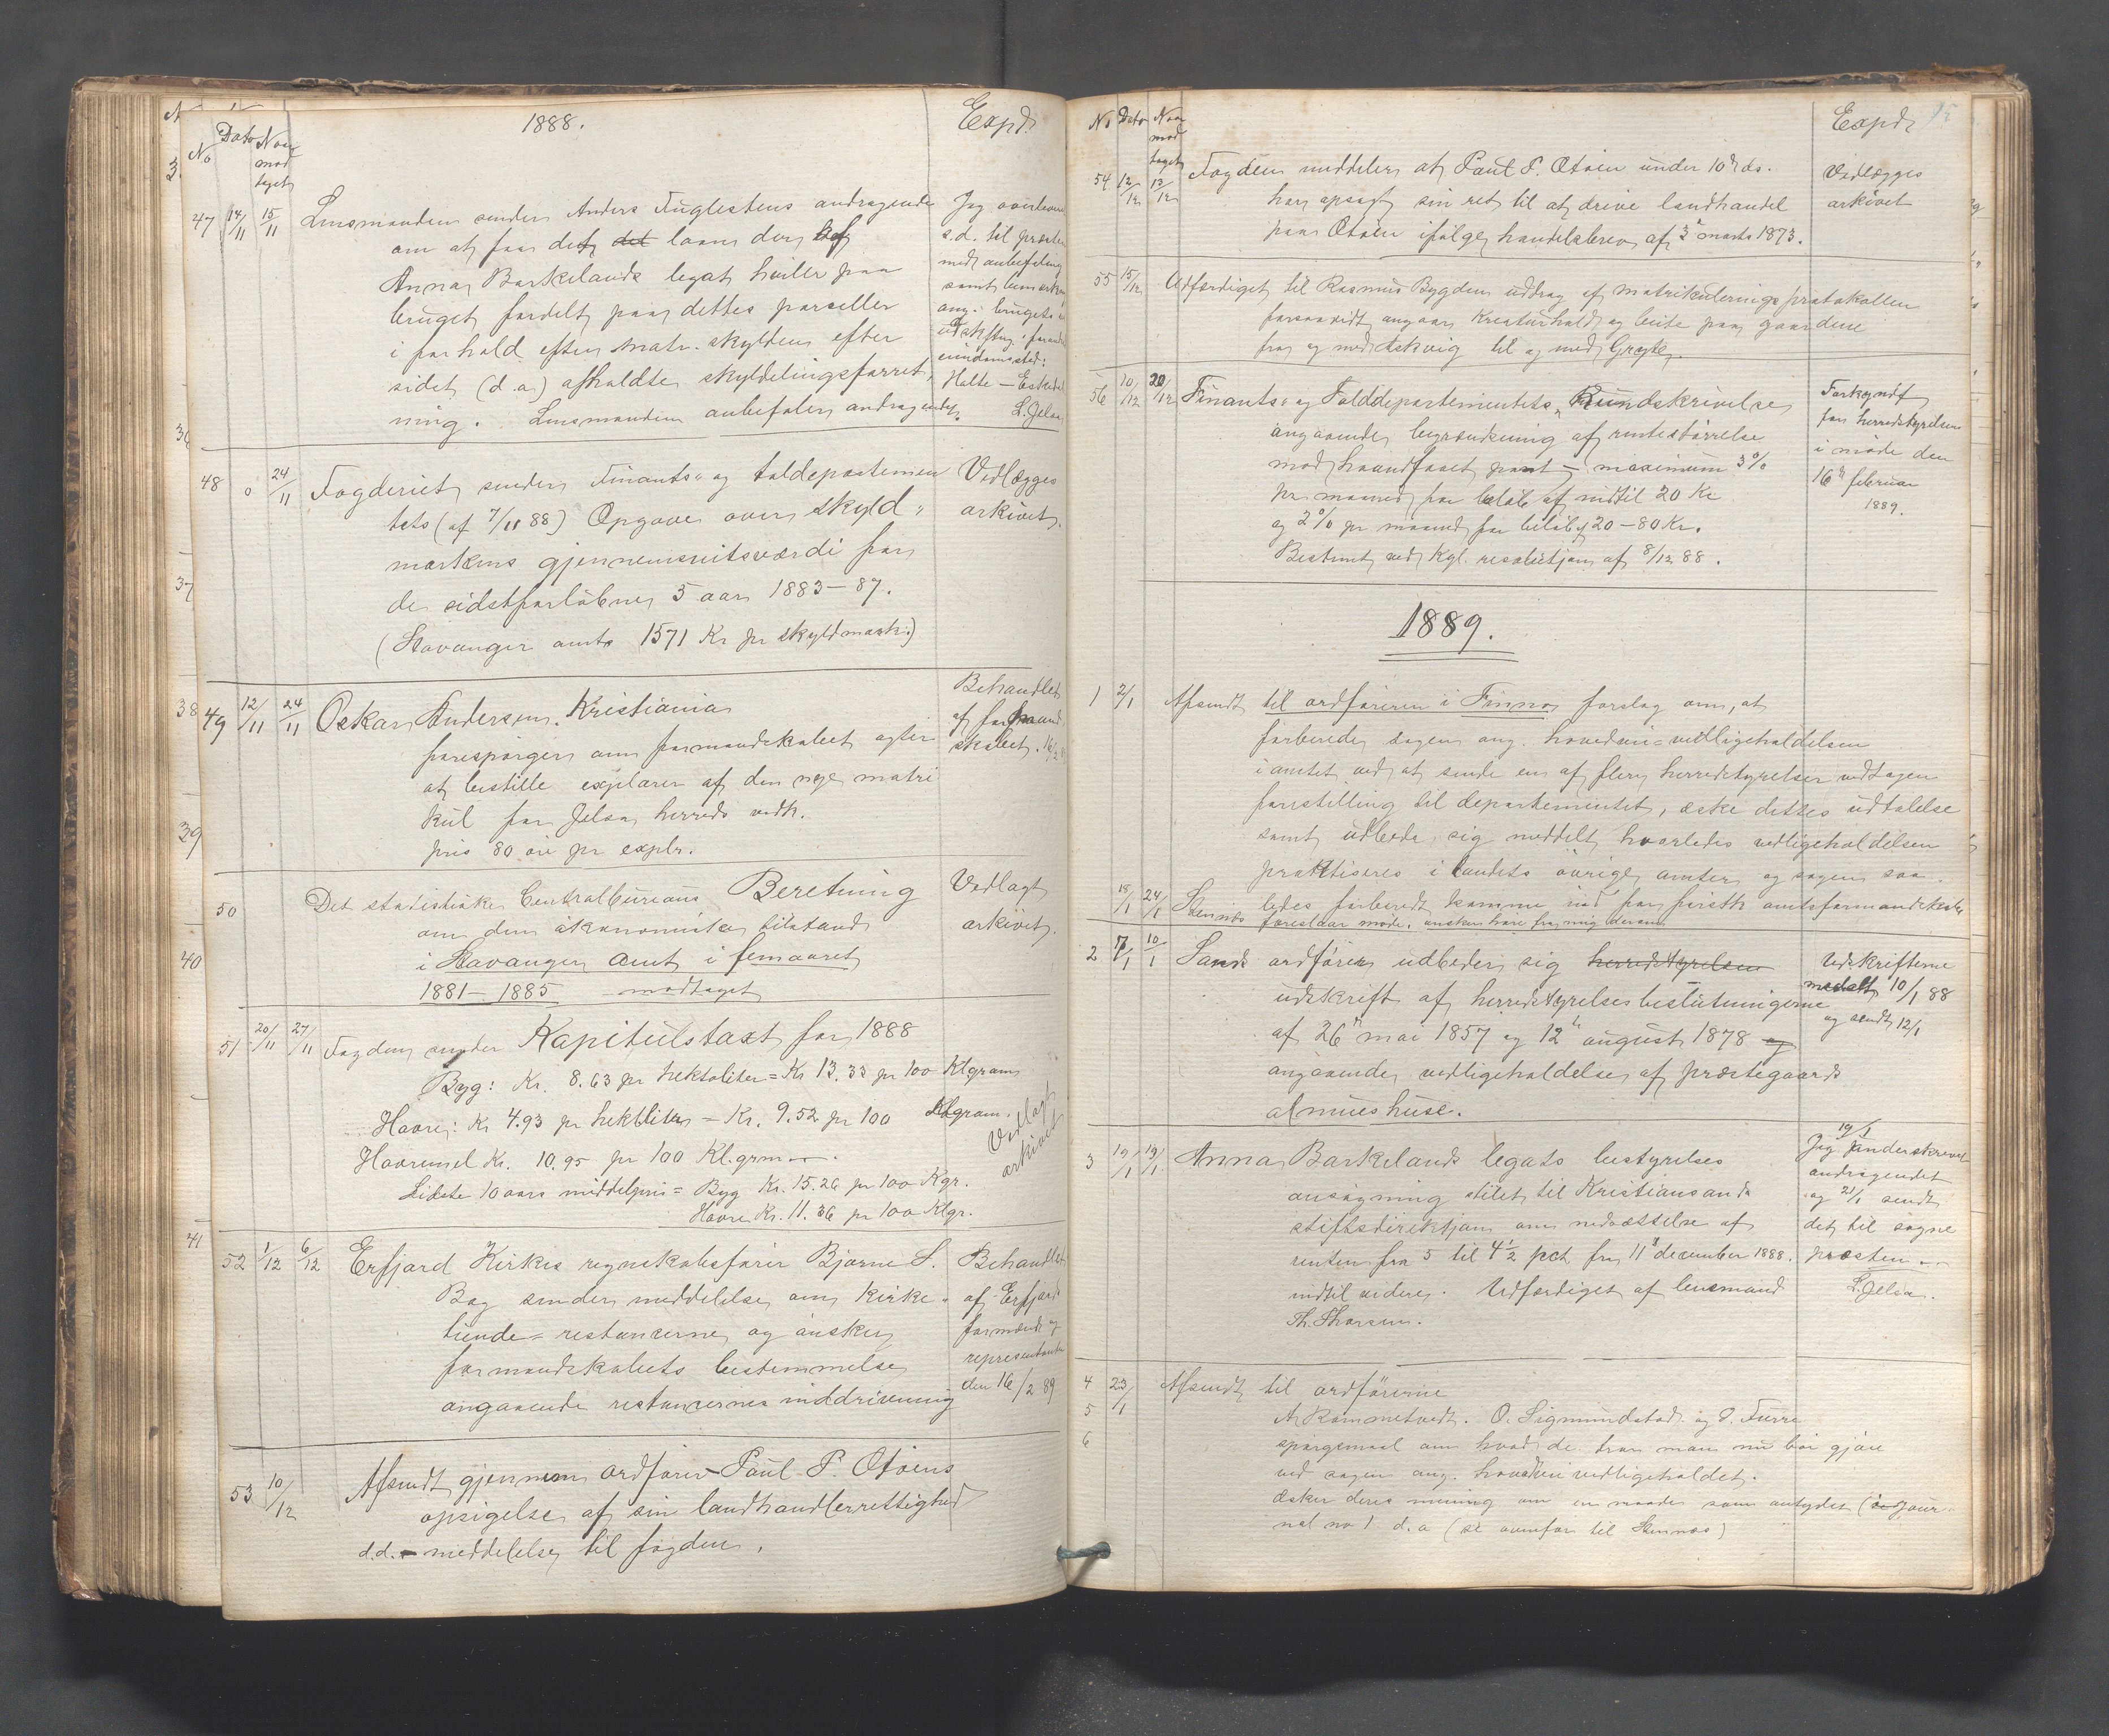 1888.
Expd.
No Dato Naar modtaget
47 14/11 15/11 Lensmanden sender Anders Fuglestens andragende
om at faa det det laan der
Anna Barkelands legat hviler paa
bruget fordelt paa dettes parceller
i forhold efter matr. skylden efter
sidst (d.a.) afholdte skyldelingsforret,
ning. Lensmanden anbefaler andragendet.
Jeg
s.d. til præsten
med anbefaling
samt
ang. brugets
eiendomssted:
Halte – 
L. Jelsa
48 0 24/11 Fogderiet sender Finants- og tolddepartemen
tets (af 7/11 88) Opgave over skyld-
markens gjennemsnitsværdi for
de sidstforløbne 5 aar 1883–87.
(Stavanger amts 1571 Kr pr skyldmark.)
Vedlægges
arkivet.
49 12/11 24/11 Oskar Andersen, Kristiania
forespørger om formandskabet agter
at bestille explarer af den nye matri
kul for Jelsa herreds vedk.
pris 80 øre pr explr.
Behandlet
af formand
skabet. 16/2
50 Det statistiske Centralbureaus Beretning
om den økonomiske tilstand
i Stavanger Amt i femaaret
1881–1885 modtaget
Vedlagt
arkivet.
51 20/11 27/11 Fogden sender Kapitulstaxt for 1888
Byg: Kr. 8.63 pr hektoliter = Kr 13.33 pr 100 Klgram
Havre: Kr 4.93 pr hektliter = Kr. 9.52 pr 100 Klgram.
Havremel Kr. 10.95 pr 100 Kl.grm
Sidste 10 aars middelpris = Byg Kr. 15.26 pr 100 Kgr.
Havre Kr. 11.36 pr 100 Klgr.
Vedlagt
arkivet
52 1/12 6/12 Erfjord Kirkes regnskabsfører Bjarne S.
Bag sender meddelelse om kirke-
tiende-restancerne og ønsker
formandskabets bestemmelse
angaaende restancernes inddrivning
Behandlet
af Erfjords
formænd og
repræsentanter
den 16/2 89
53 10/12 Afsendt gjennem ordfører Paul P. Otøens
opsigelse af sin landhandlerrettighed
d.d. – meddelelse til fogden.
No Dato Naar modtaget
Expd.
54 12/12 13/12 Fogden meddeler at Paul P. Otøen under 10de ds.
har opsagt sin ret til at drive landhandel
paa Otøen ifølge handelsbrev af 3 marts 1873.
Vedlægges
arkivet
55 15/12 Udfærdiget til Rasmus Bygden uddrag af matrikuleringsprotokollen
forsaavidt angaar Kreaturhold og beite paa gaardene
fra og med Askvig til og med Gryte
56 10/12 20/12 Finants- og Tolddepartementets Rundskrivelse
angaaende begrændsning af rentestørrelse
mod haandfaaet pant – maximum 3%
pr maaned for beløb af indtil 20 Kr
og 2% pr maaned for beløb 20–80 Kr.
Bestemt ved Kgl. resolutjon af 8/12 88.
Forkyndt
for herredstyrelsen
i møde den
16de februar
1889.
1889.
1 2/1 Afsendt til ordføreren i Finnø forslag om, at
forberede sagen ang. hovedvei-vedligeholdelsen
i amtet ved at sende en af flere herredstyrelser vedtagen
forestilling til departementet, æske dettes udtalelse
samt udbede sig meddelt hvorledes vedligeholdelsen
praktiseres i landets øvrige amter og sagen saa-
ledes forberedt komme ind for førstk amtsformandskab
18/1 24/1 Stennæs foreslaar møde, ønsker høre fra mig derom
2 7/1 10/1 Sands ordfører udbeder sig herredstyrelsen
udskrift af herredstyrelsesbeslutningerne
af 26de mai 1857 og 12te august 1878 og
angaaende vedligeholdelse af præstegaards
almueshuse.
Udskrifterne
meddelt 10/1 88
og sendt 12/1
3 19/1 19/1 Anna Barkelands legats bestyrelses
ansøgning stilet til Kristiansands
stiftsdirektjon om nedsættelse af
renten fra 5 til 4 1/2 pct fra 11te december 1888
indtil videre. Udfærdiget af lensmand
Th. Thorsen.
19/1
Jeg underskrevet
andragendet
og 21/1 sendt
det til sogne
præsten
L. Jelsa.
4 23/1 Afsendt til ordførerne
5 A. Kommetvedt. O. Sigmundstad og P. Furre
6 spørgsmaal om hvad de tror man nu bør gjøre
ved sagen ang. hovedveivedligeholdet.
Æsker deres mening om en maade som antydet (jour-
nal no 1 d.a (se ovenfor til Stennæs)